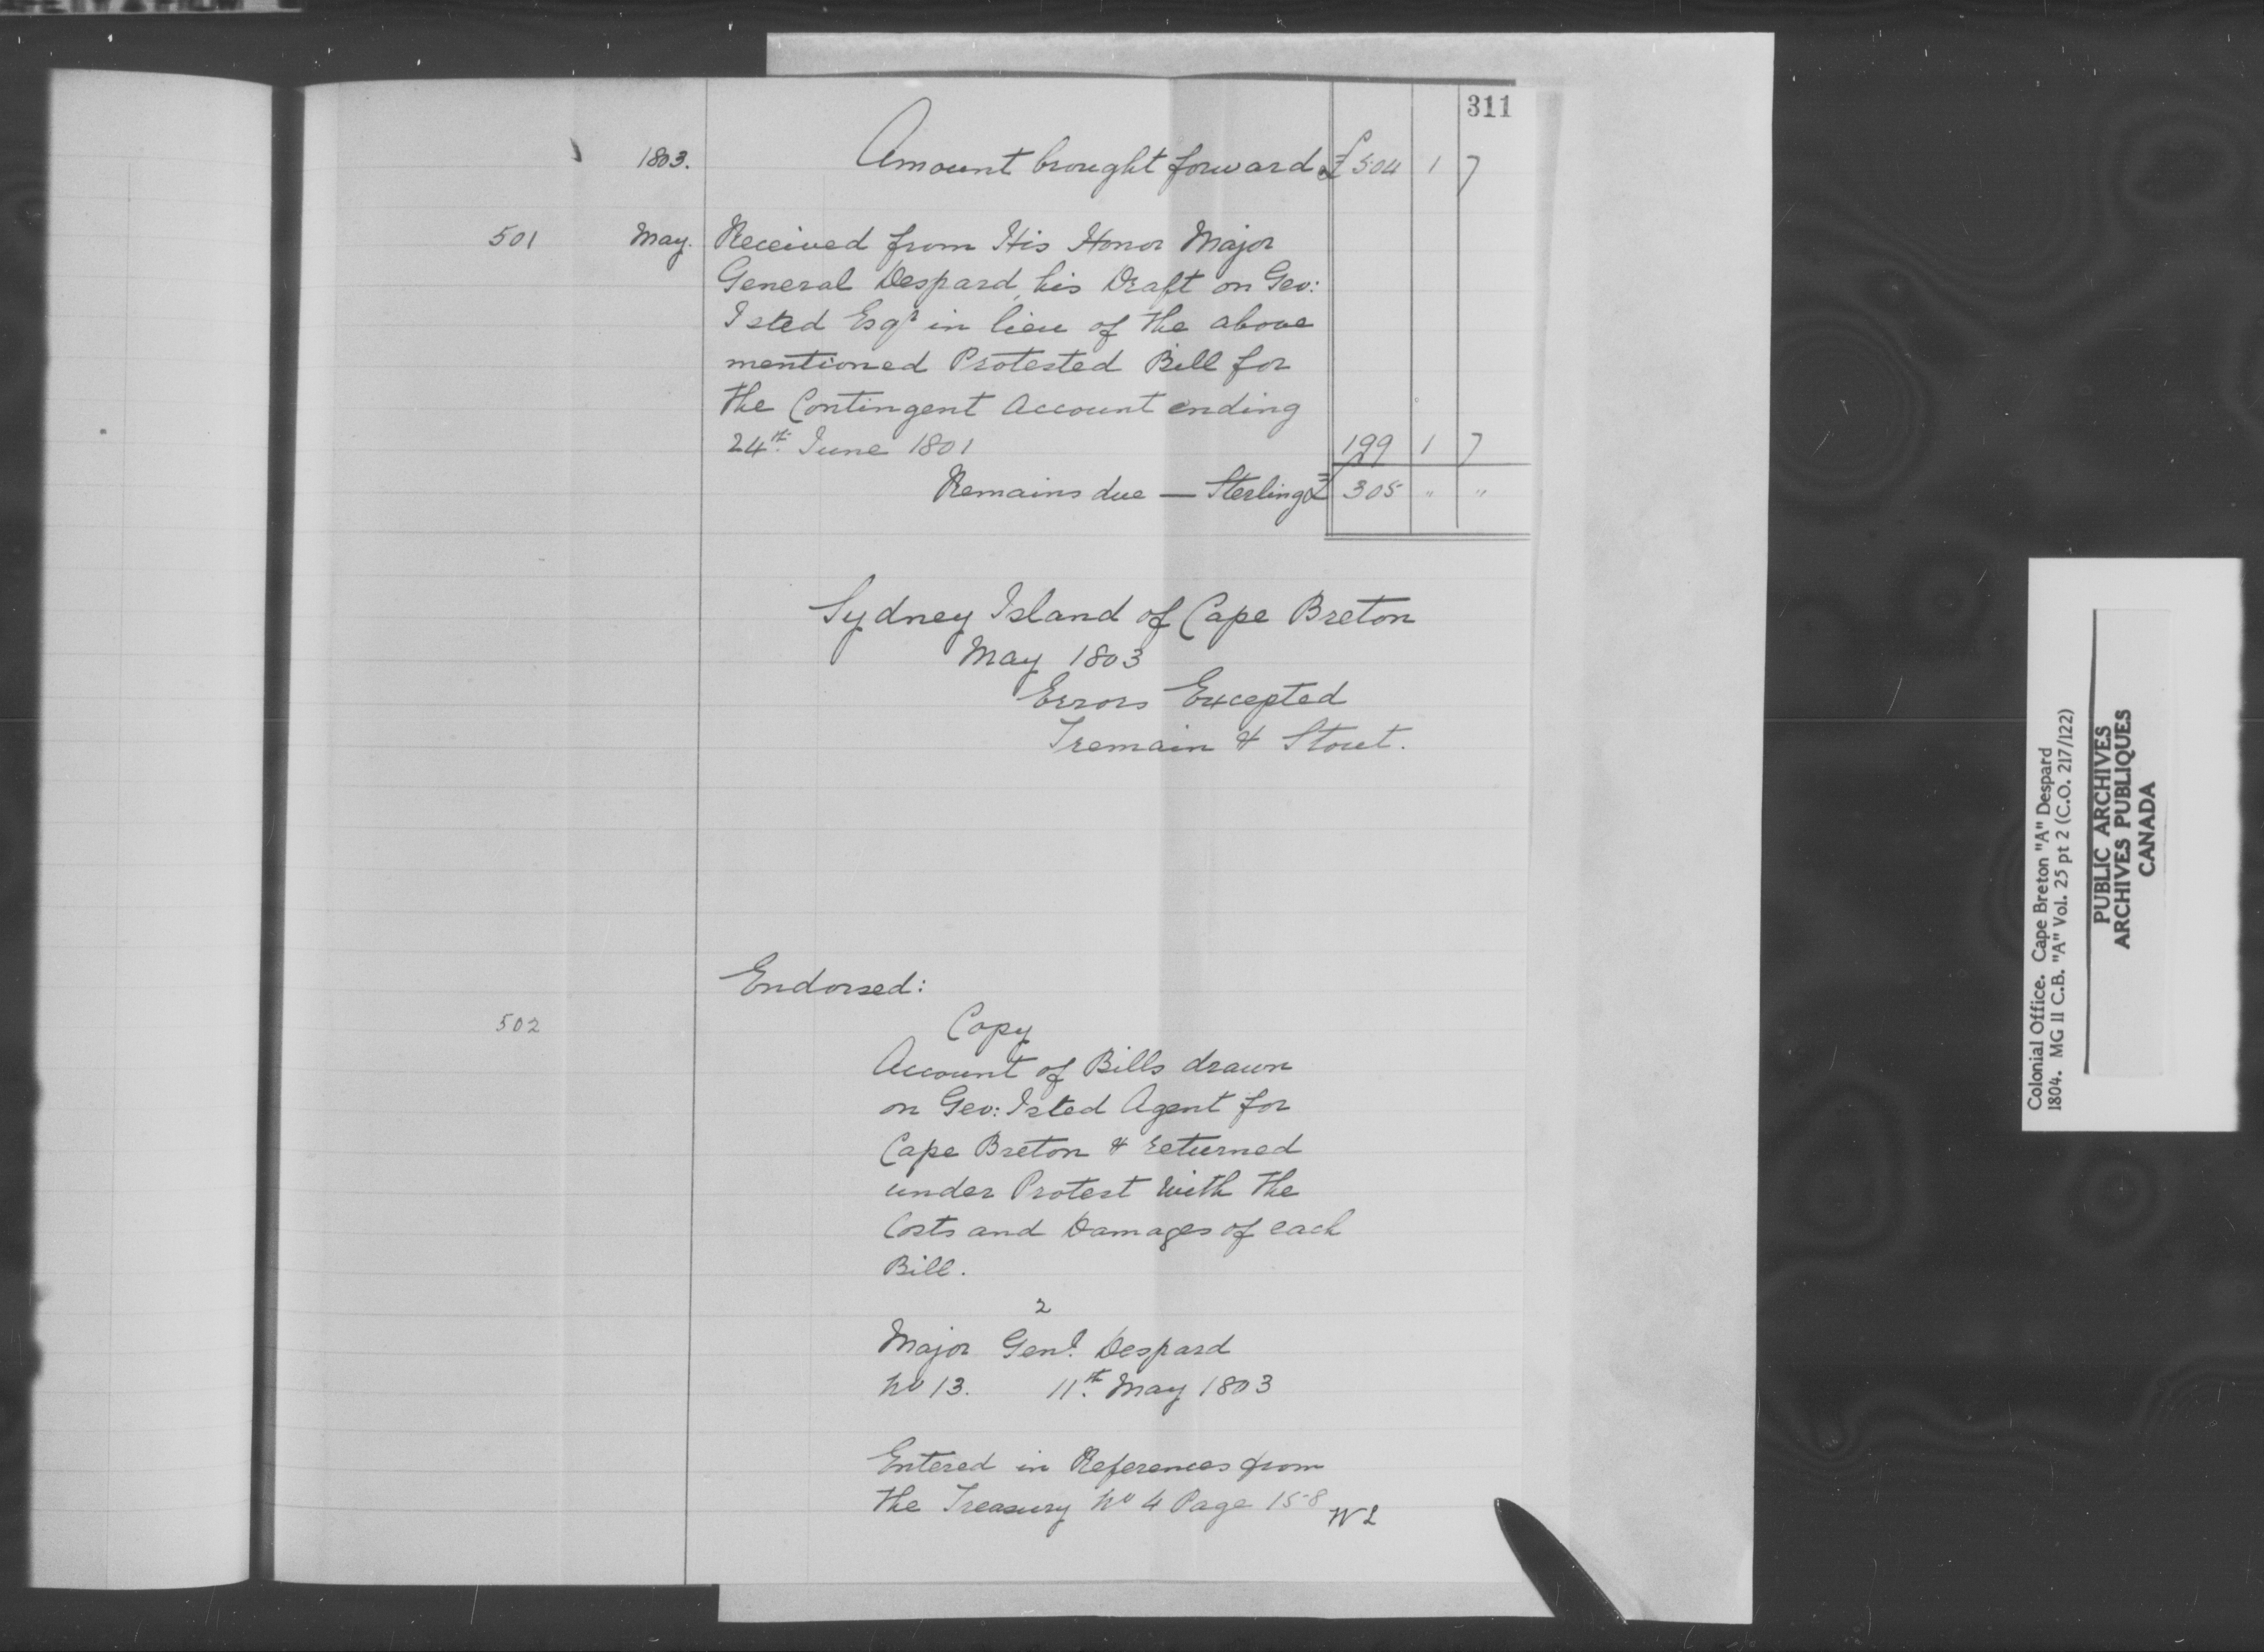 311
1803. Amount brought forward £ 504 1 7
501 May. Received from His Honor Major
General Despard, his Draft on Geo:
Isted Esqr in lieu of the above
mentioned Protested Bill for
the Contingent Account ending
24th June 1801 199 1 7
Remains due — Sterling £ 305 " "
Sydney Island of Cape Breton
May 1803
Errors Excepted
Tremain & Stout.
Endorsed:
502
Copy
Account of Bills drawn
on Geo: Isted Agent for
Cape Breton & returned
under Protest with the
Costs and Damages of each
Bill.
2
Major Genl. Despard
No 13. 11th May 1803
Entered in References from
the Treasury No 4 Page 158
Colonial Office. Cape Breton "A" Despard
1804. MG 11 C.B. "A" Vol. 25 pt 2 (C.O. 217/122)
PUBLIC ARCHIVES
ARCHIVES PUBLIQUES
CANADA